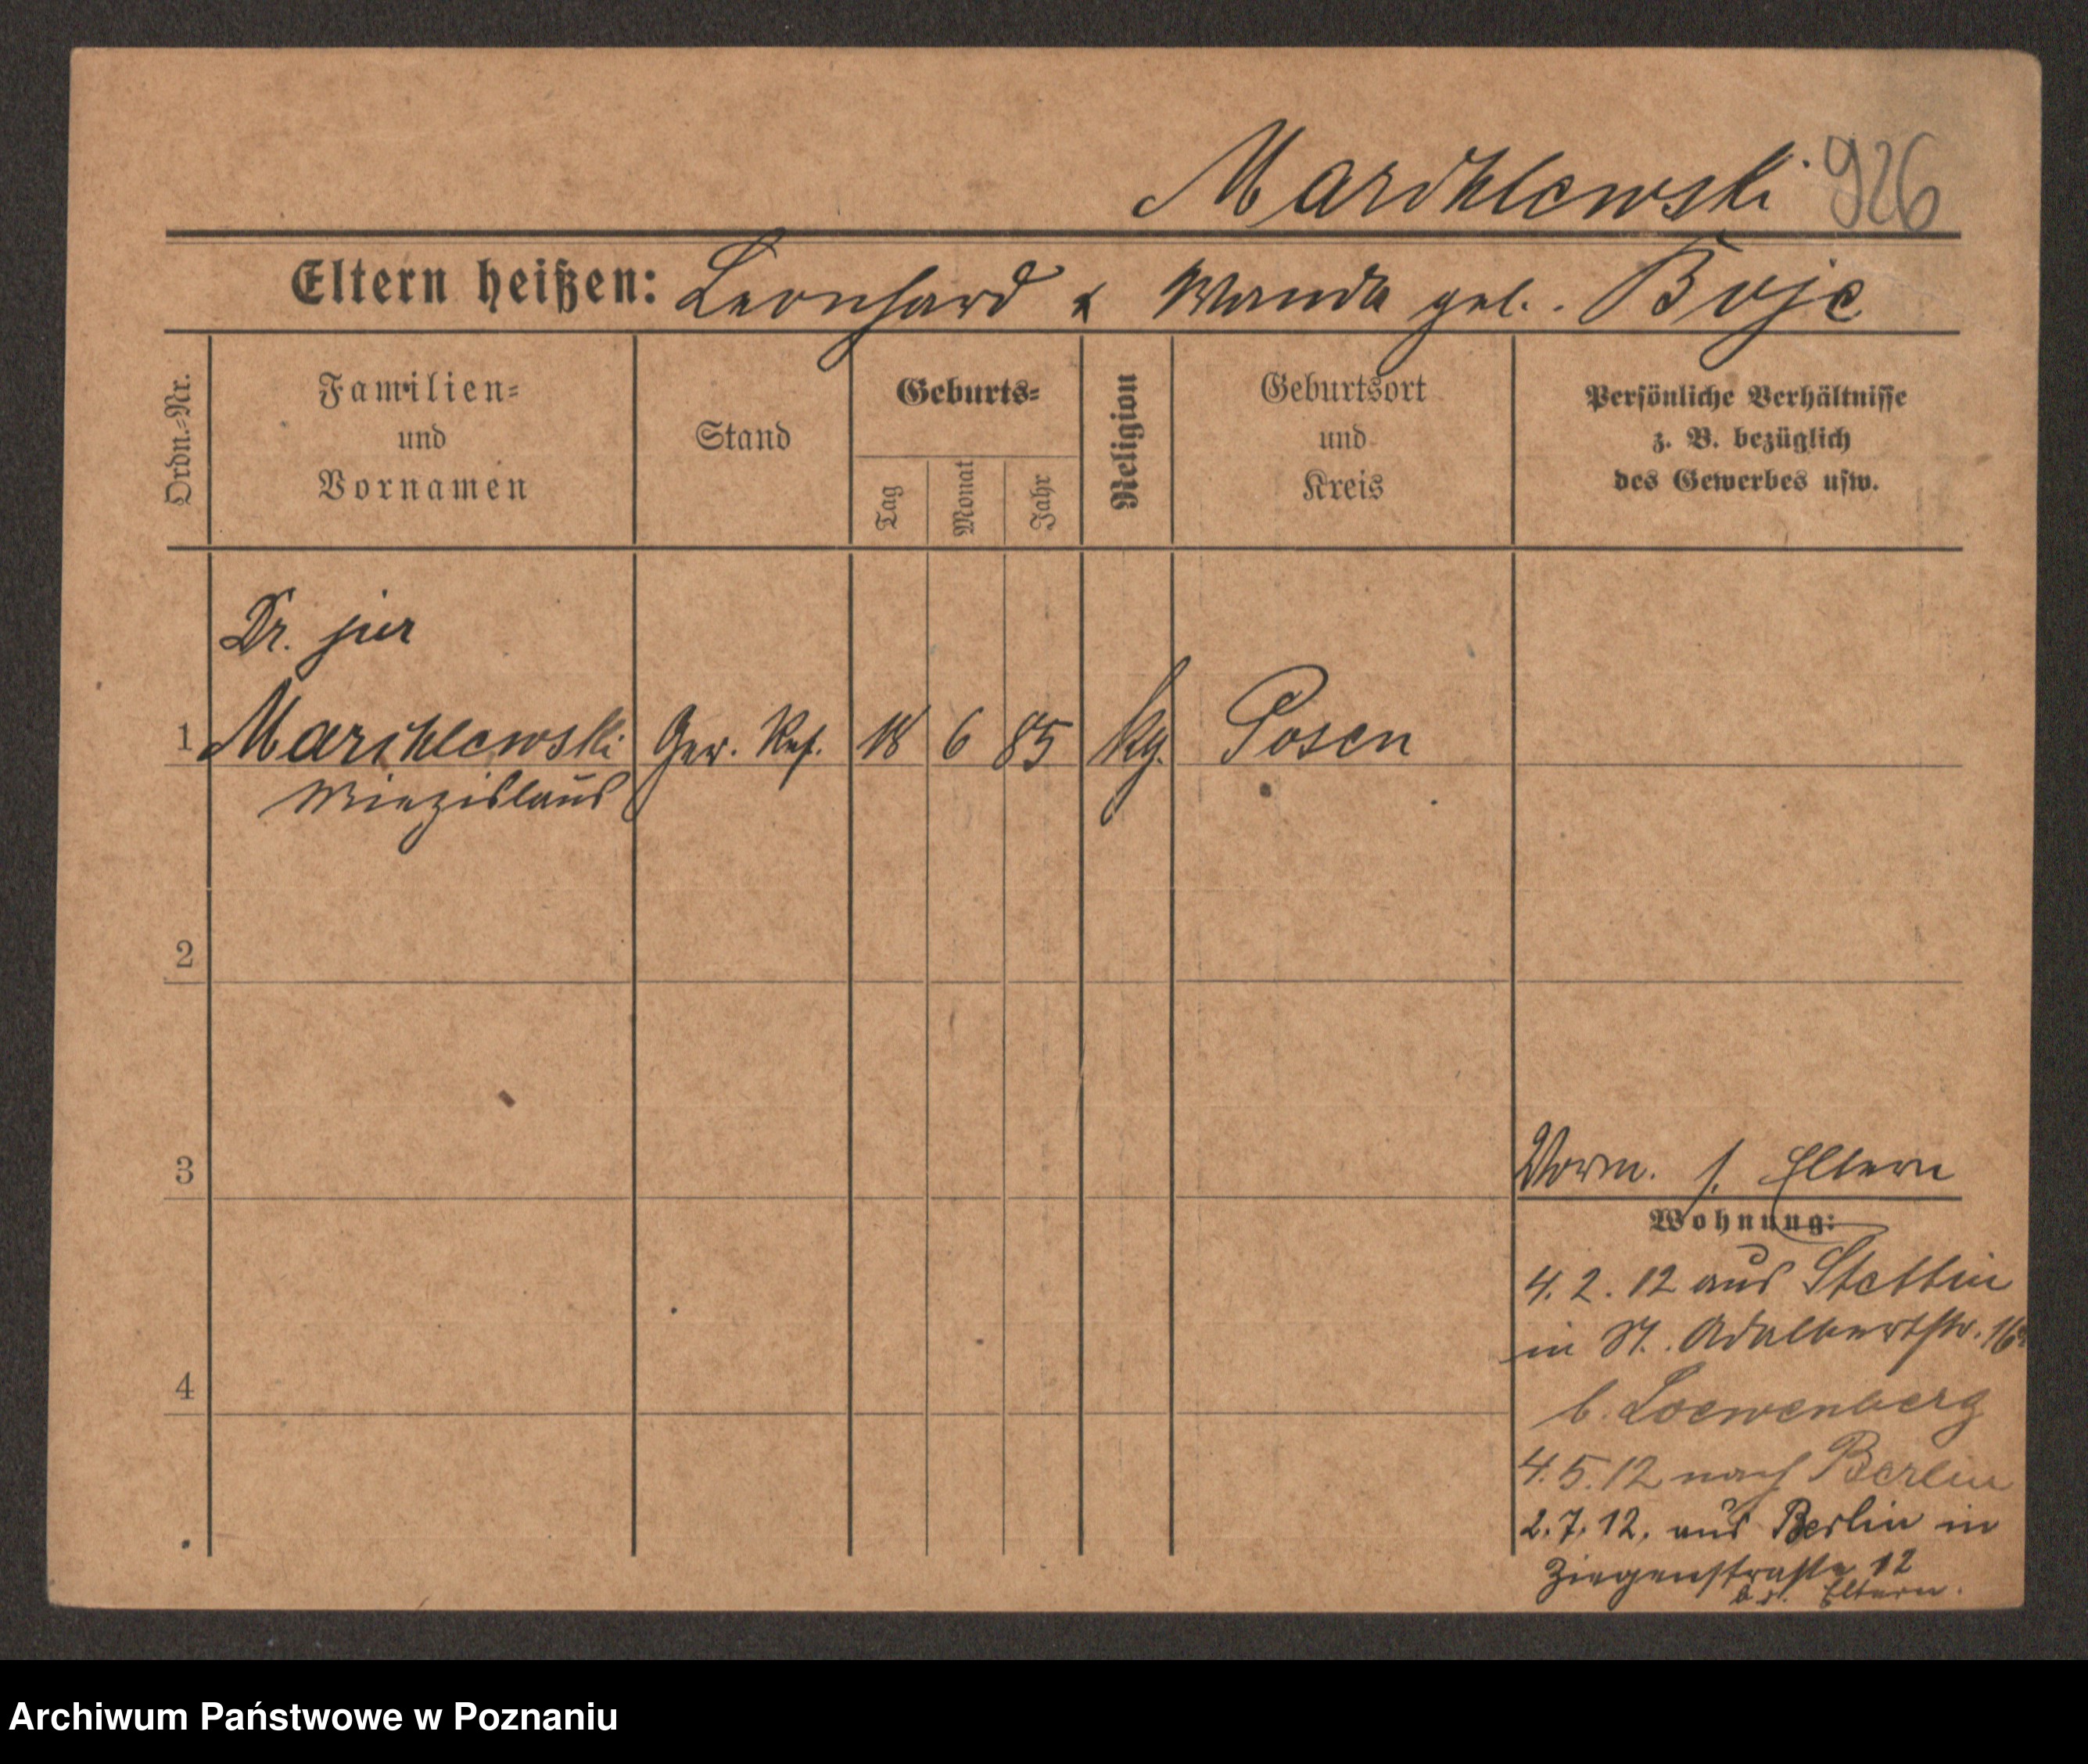 Marchlewski 926
Eltern heißen: Leonhard & Wanda geb. Boje
Ordn.-Nr.
Familien-
und
Vornamen
Stand
Geburts-
Tag
Monat
Jahr
Religion
Geburtsort
und
Kreis
Persönliche Verhältnisse
z. B. bezüglich
des Gewerbes usw.
Dr. jur
1 Marchlewski Ger. Ref. 18 6 85 kg. Posen
Miezislaus
2
3
Vorm. s. Eltern
Wohnung:
4. 2. 12 aus Stettin
in St. Adalbertstr. 16
4
b. Loewenberg
4. 5. 12 nach Berlin
2. 7. 12. aus Berlin in
Ziegenstraße 12
b. s. Eltern.
Archiwum Państwowe w Poznaniu